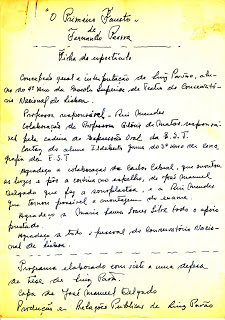 "O Primeiro Fausto"
de
Fernando Pessoa
Ficha do espectáculo
Concepção geral e interpretação de Luiz Pavão, alu-
no do 4º ano da Escola Superior de Teatro do Conservató-
rio Nacional de Lisboa.
Professor responsável - Rui Mendes
Colaboração do Professor Glória de Matos, responsá-
vel pela cadeira de Expressão Oral da E.S.T.
Cartaz do aluno do 3º ano de Ceno-
grafia da E.S.T
Agradeço a colaboração de Carlos Cabral, que montou
as luzes e fez a cortina em espelho, de José Manuel
Delgado que fez a sonoplastia, e a Rui Mendes
que tornou possível a montagem do exame.
Agradeço a Maria Sousa todo o apoio
prestado.
Agradeço a todo o pessoal do Conservatório Nacio-
nal de Lisboa.
Programa elaborado com vista a uma defesa
de Tese de Luiz Pavão.
Capa de José Manuel Delgado
Produção e Relações Públicas de Luiz Pavão